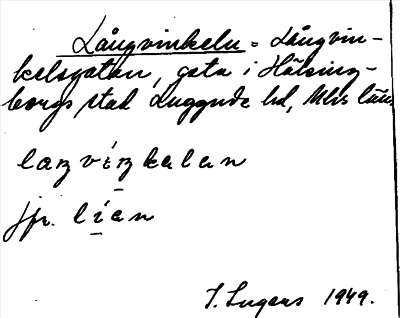 Långvinkeln = Långvin-
kelsgatan, gata i Hälsing-
borgs stad Luggude hd, Mhs län
laŋvíŋkalan
jfr. lían
I. Ingers 1949.